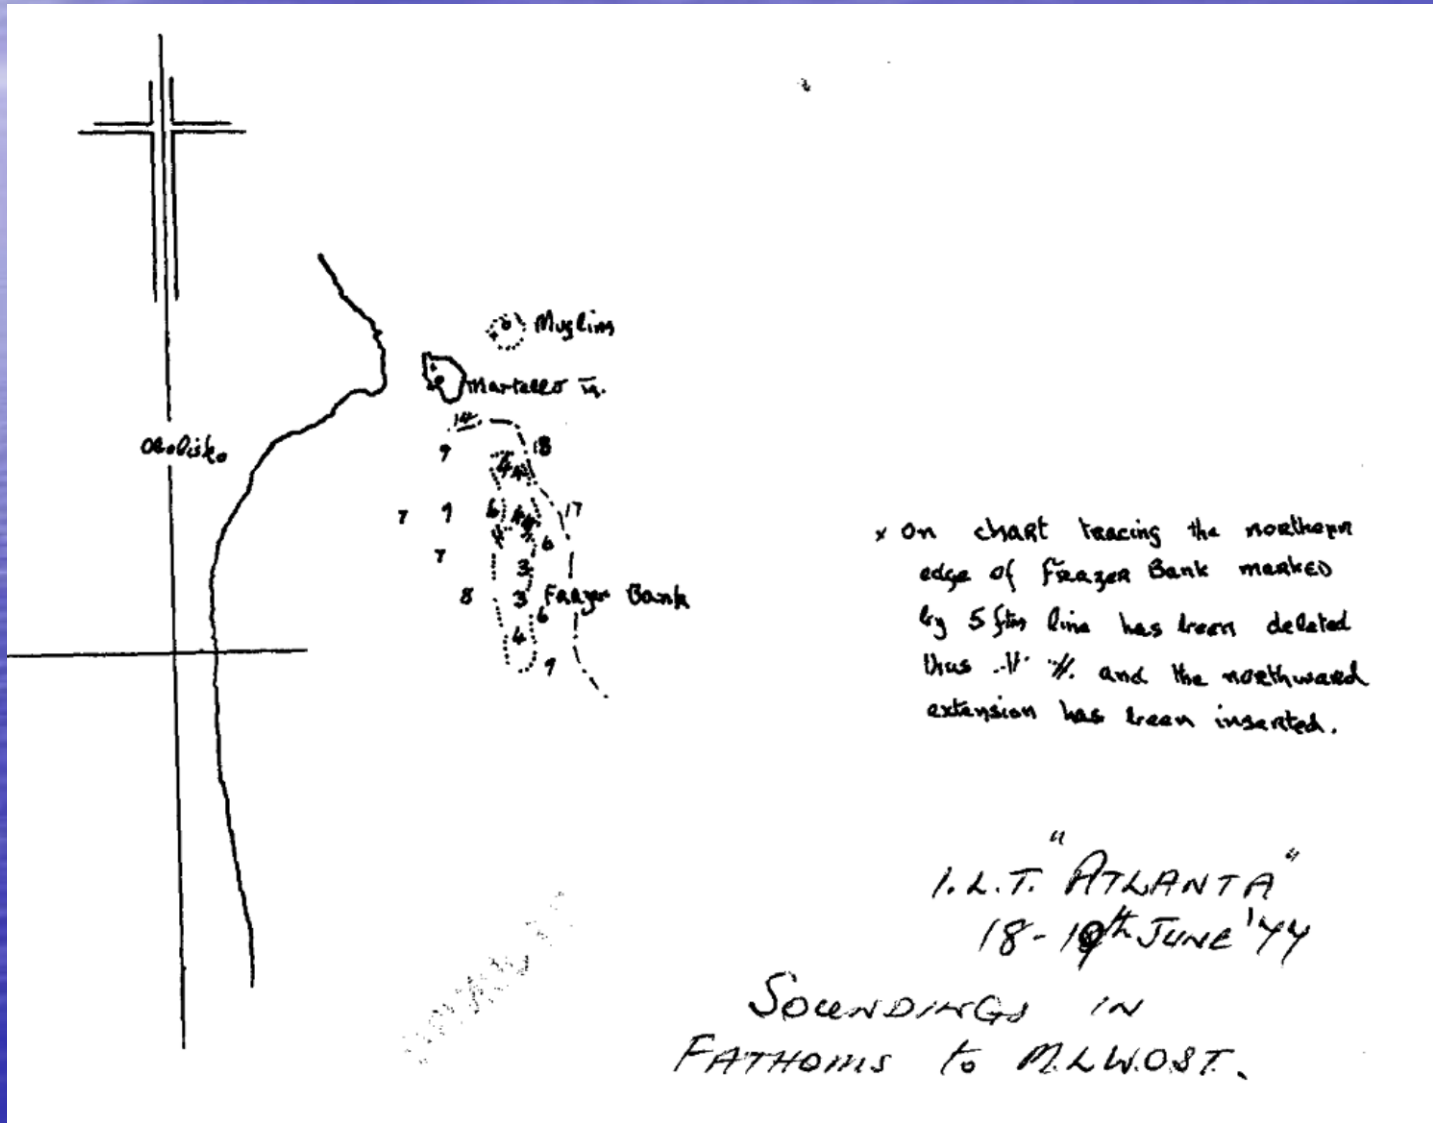 Muglins
Martello Tr.
14
9
18
4 4
7 9 6 4 4 17
7 6
3
8 3 Frazer Bank
6
4
9
Obelisk
x On chart tracing the northern
edge of Frazer Bank marked
by 5 ftm line has been deleted
thus and the northward
extension has been inserted.
I.L.T. "ATLANTA"
18-19th JUNE '44
SOUNDINGS IN
FATHOMS to M.L.W.O.S.T.